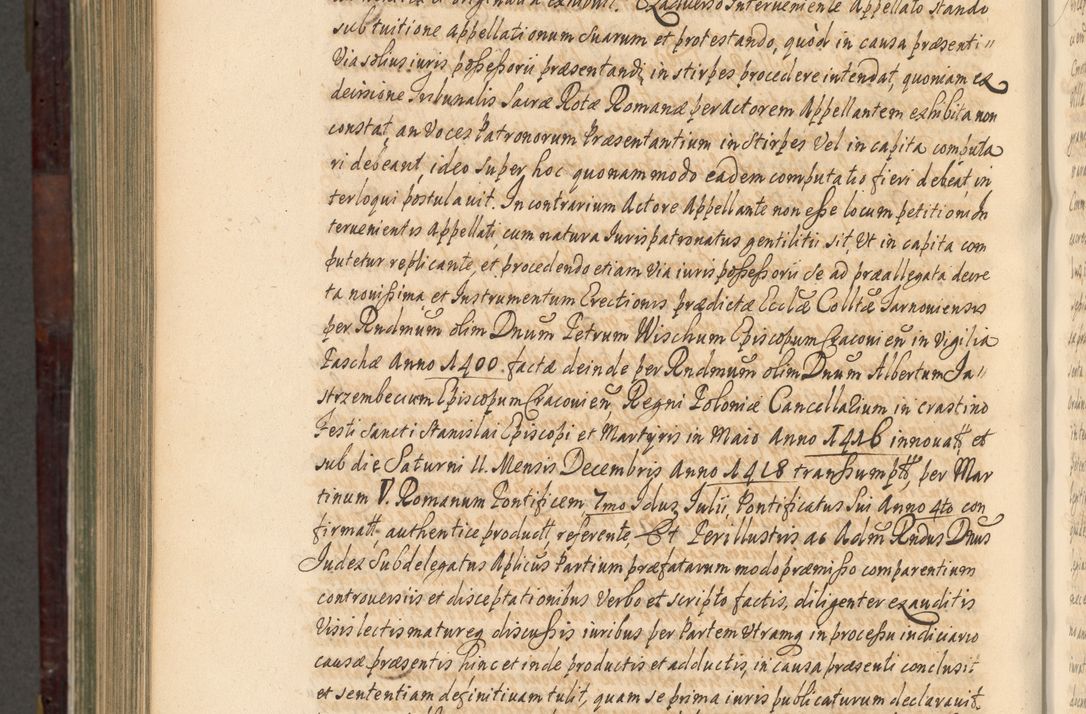 sub tuitione appellationum suarum et protestando, quòd in causa præsenti"
Via solius iuris poßeßorii præsentandi, in stirpes procedere intendat, quoniam ex
decisione Tribunalis Sacræ Rotæ Romanæ per actorem Appellantem exhibita non
constat, an Voces Patronorum Præsentantium in Stirpes Vel in capita computa
ri debeant, ideo super hoc quonam modo eadem computatio fieri debeat, in
terloqui postulauit. In contrarium Actore Appellante non eße locum petitioni In
teruenientis Appellati, cum natura Iurispatronatus gentilitii sit Vt in capita com
putetur replicante, et procedendo etiam Via iuris poßeßorii se ad præallegata decre
ta nouißima et Instrumentum Erectionis prædictæ Ecclæ Colltæ Tarnouiensis
per Rndmum olim Dnum Petrum Wischum Episcopum Cracouien in Vigilia
Paschæ Anno 1400. factæ deinde per Rndmum olim Dnum Albertum Ja"
strzembecium Episcopum Cracouien, Regni Poloniæ Cancellarium in crastino
Festi Sancti Stanislai Episcopi et Martyris in Maio Anno 1416 innouatt et
sub die Saturni 11. Mensis Decembris Anno 1418 transsumptt, per Mar
tinum V. Romanum Pontificem 7mo Idus Iulii, Pontificatus Sui Anno 4to con
firmatt authentice productt referente, Et Perillustris ac Adm Rndus Dnus
Judex Subdelegatus Aplicus Partium præfatarum modo præmißo comparentium
controuersiis et disceptationibus Verbo et scripto factis, diligenter exauditis
Visis lectis matureq discußis iuribus per Partem Vtramq in proceßu iudiciario
causæ præsentis hinc et inde productis et adductis, in causa præsenti conclusit
et sententiam definitiuam tulit, quam se prima iuris publicaturum declarauit.